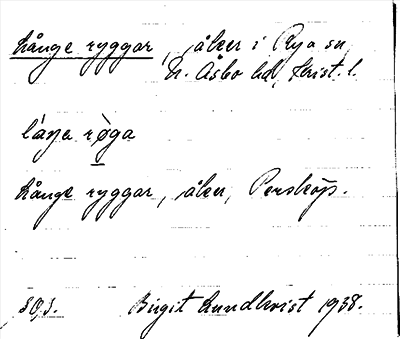 hånge ryggar, åker i Rya sn
N. Åsbo hd, Krist. l.
láŋa rø̀ga
hånge ryggar, åker, Perstorp.
SOJ. Birgit Lundkvist 1938.